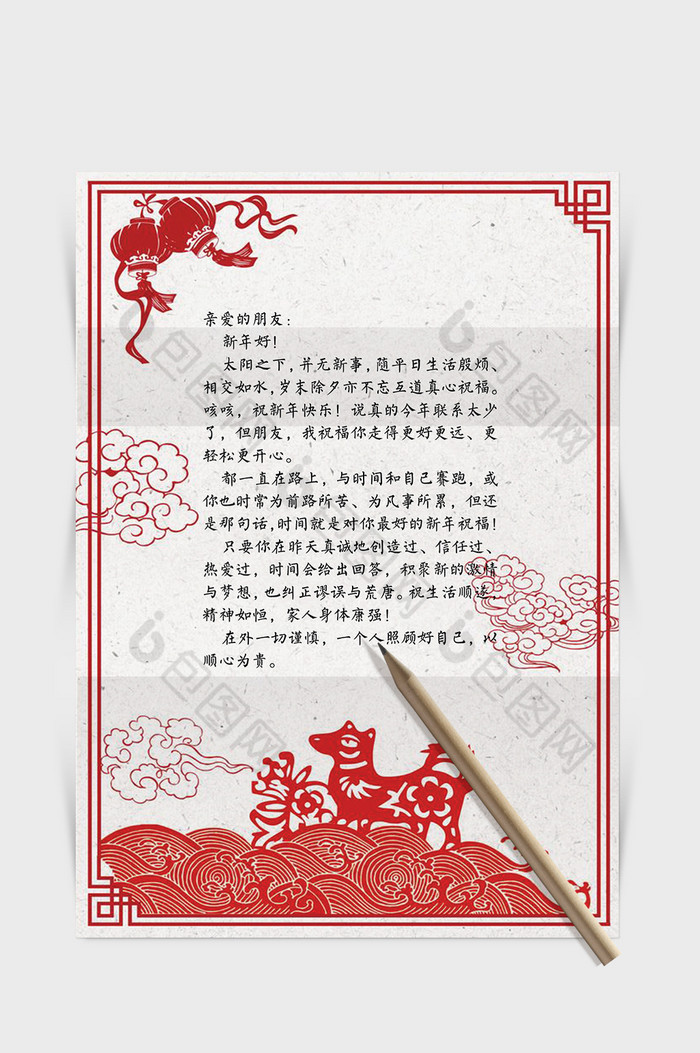 亲爱的朋友:
新年好!
太阳之下,并无新事,随平日生活殷烦、
相交如水,岁末除夕亦不忘互道真心祝福。
咳咳,祝新年快乐!说真的今年联系太少
了,但朋友,我祝福你走得更好更远、更
轻松更开心。
都一直在路上,与时间和自己赛跑,或
你也时常为前路所苦、为凡事所累,但还
是那句话,时间就是对你最好的新年祝福!
只要你在昨天真诚地创造过、信任过、
热爱过,时间会给出回答,积聚新的激情
与梦想,也纠正谬误与荒唐。祝生活顺遂,
精神如恒,家人身体康强!
在外一切谨慎,一个人照顾好自己,以
顺心为贵。
包图网
包图网
包图网
包图网